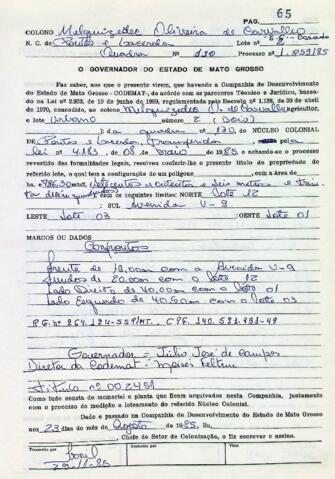 PAG. 65
COLONO Melquizedec Oliveira de Carvalho
N. C. de Pontes e Lacerda Lote n.º 2
Quadra nº 130 Processo n.º 1.059/85
O GOVERNADOR DO ESTADO DE MATO GROSSO
Faz saber, aos que o presente virem, que havendo a Companhia de Desenvolvimento
do Estado de Mato Grosso - CODEMAT-, de acôrdo com os pareceres Técnico e Jurídico, basea-
do na Lei nº 2.953, de 19 de junho de 1969, regulamentada pelo Decreto nº 1.138, de 20 de abril
de 1970, concedido, ao colono Melquizedec O. de Carvalho agricultor,
o lote Urbano número 2 (Dois)
da quadra nº 130, do NÚCLEO COLONIAL
DE Pontes e Lacerda, pela
lei nº 4.183, de 08 de maio de 1985, e achando-se o processo
revestido das formalidades legais, resolveu conferir-lhe o presente título de propriedade do
referido lote, o qual tem a configuração de um polígono com a área de
com os seguintes limites: NORTE Lote 12
SUL Avenida V-9
LESTE Lote 03 OESTE Lote 01
MARCOS OU DADOS
Confrontos
Frente de com a Avenida V-9
Fundos de 20,00m com o Lote 12
Lado Direito de 40,00m com o Lote 01
Lado Esquerdo de com o Lote 03
R.G. nº 264.124-SSP/MT. CPF. 140.531.931-49
Governador = Júlio José de Campos
Diretor da Codemat - Moisés Feltrin
Título nº 002451
Tudo como consta do memorial e planta que ficam arquivados nesta Companhia, juntamente
com o processo de medição e loteamento do referido Núcleo Colonial.
Dado e passado na Companhia de Desenvolvimento do Estado de Mato Grosso
aos 23 dias do mês Agosto de 1985, Eu,
Chefe do Setor de Colonização, o fiz escrever e assino.
Transcrito por Conferido por Visto
29-11-85